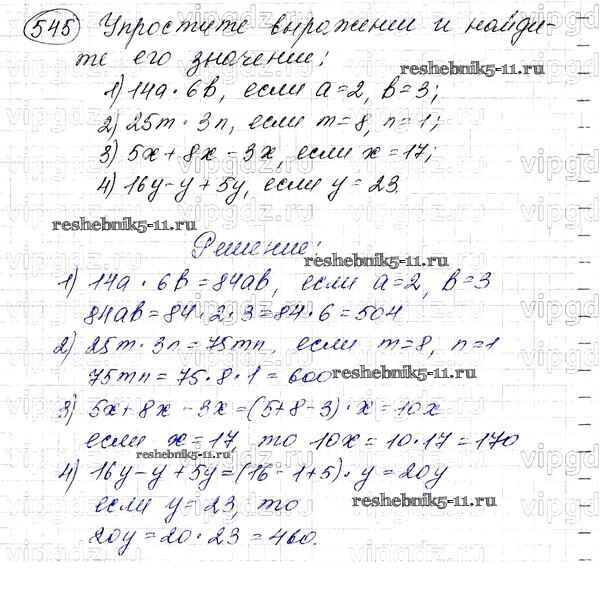 545 Упростите выражении и найди-
те его значении:
reshebnik5-11.ru
1) 14a · 6b, если a=2, b=3;
2) 25m · 3n, если m=8, n=1;
3) 5x+8x-3x, если x=17;
4) 16y-y+5y, если y=23.
reshebnik5-11.ru
Решение:
1) 14a · 6b = 84ab, если a=2, b=3
84ab = 84·2·3 = 84·6 = 504
2) 25m · 3n = 75mn, если m=8, n=1
75mn = 75·8·1 = 600
reshebnik5-11.ru
3) 5x+8x-3x = (5+8-3)·x = 10x
если x=17, то 10x = 10·17 = 170
reshebnik5-11.ru
4) 16y-y+5y = (16-1+5)·y = 20y
reshebnik5-11.ru
если y=23, то
20y = 20·23 = 460.